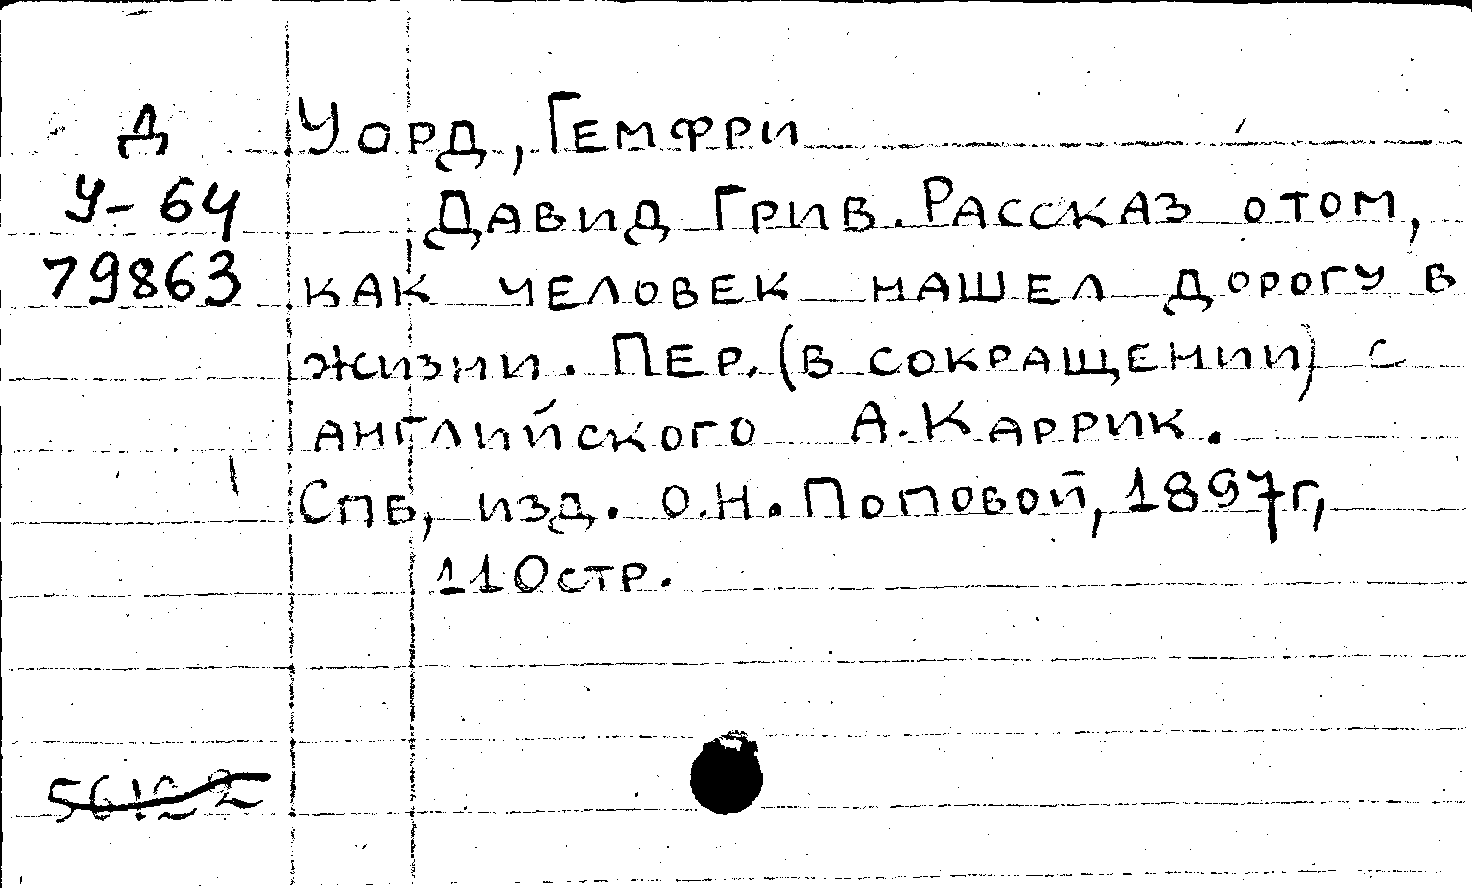 Д Уорд, Гемфри
У-64 Давид Грив. Рассказ о том,
79863 как человек нашел дорогу в
жизни. Пер. (в сокращении) с
английского А. Каррик.
Спб, изд. О.Н. Поповой, 1897г,
110стр.